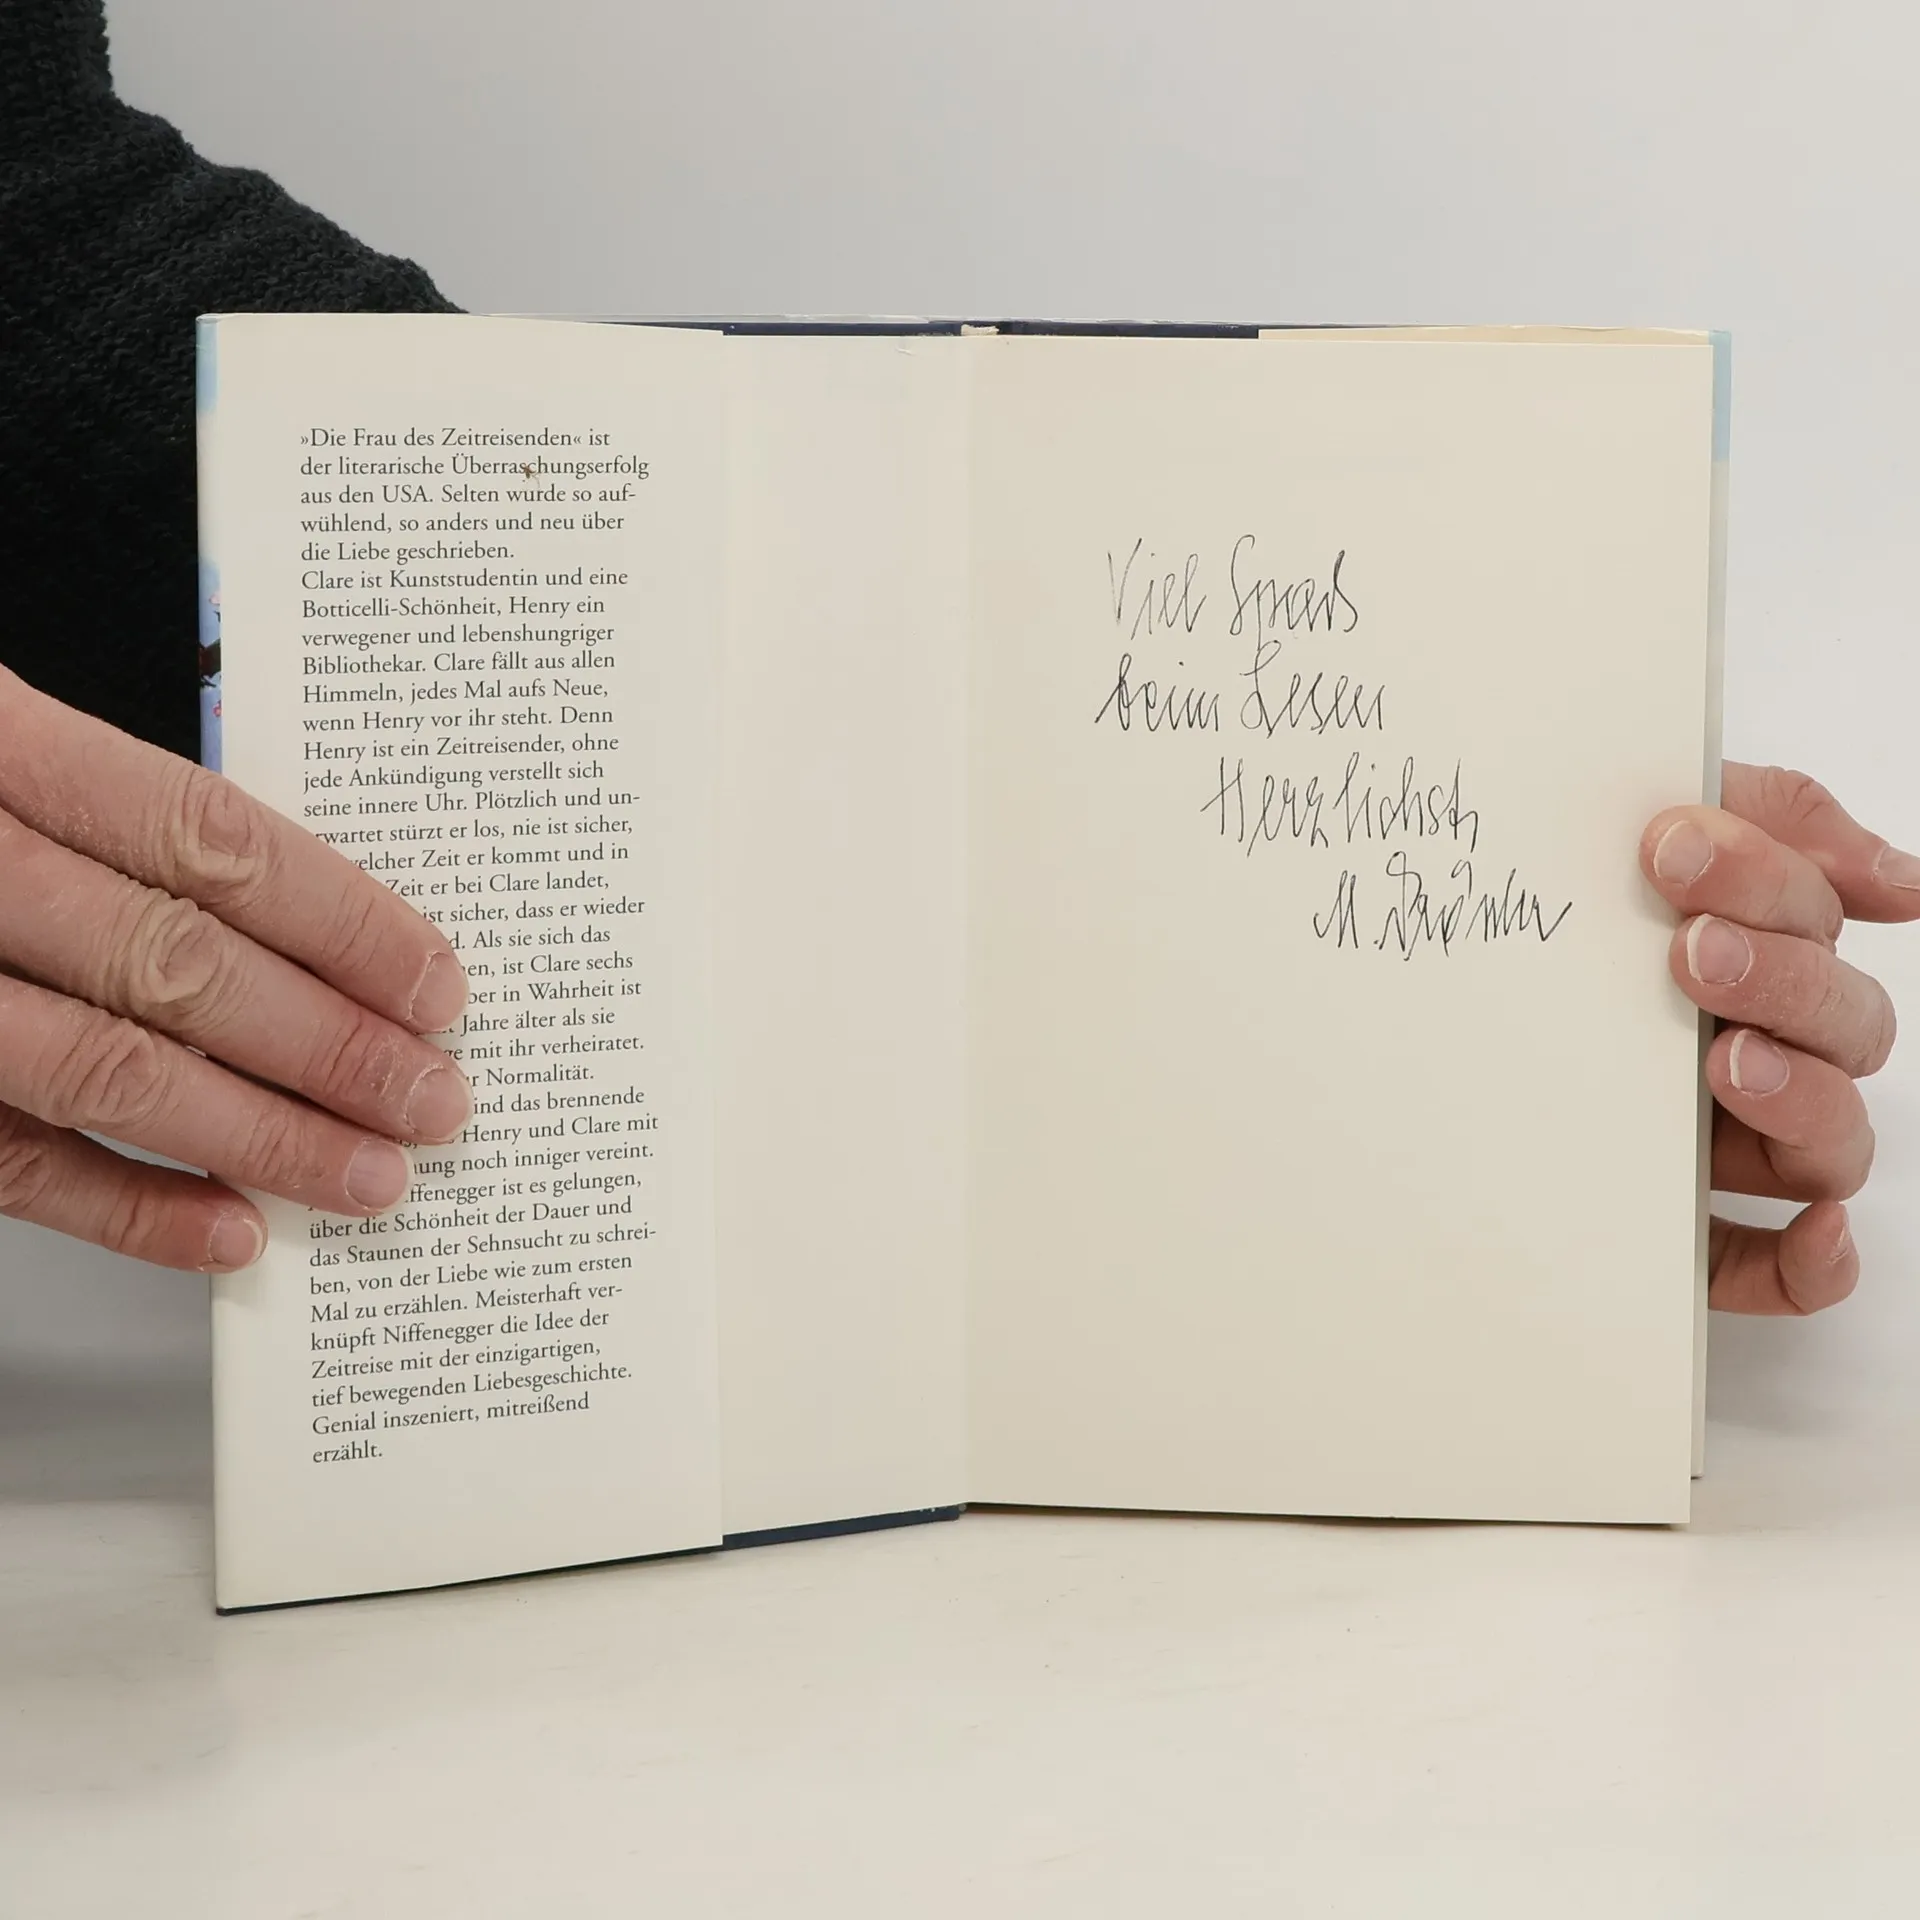 »Die Frau des Zeitreisenden« ist
der literarische Überraschungserfolg
aus den USA. Selten wurde so auf-
wühlend, so anders und neu über
die Liebe geschrieben.
Clare ist Kunststudentin und eine
Botticelli-Schönheit, Henry ein
verwegener und lebenshungriger
Bibliothekar. Clare fällt aus allen
Himmeln, jedes Mal aufs Neue,
wenn Henry vor ihr steht. Denn
Henry ist ein Zeitreisender, ohne
jede Ankündigung verstellt sich
seine innere Uhr. Plötzlich und un-
rwartet stürzt er los, nie ist sicher,
elcher Zeit er kommt und in
Zeit er bei Clare landet,
ist sicher, dass er wieder
d. Als sie sich das
en, ist Clare sechs
ber in Wahrheit ist
Jahre älter als sie
ge mit ihr verheiratet.
r Normalität.
ind das brennende
Henry und Clare mit
ung noch inniger vereint.
ffenegger ist es gelungen,
über die Schönheit der Dauer und
das Staunen der Sehnsucht zu schrei-
ben, von der Liebe wie zum ersten
Mal zu erzählen. Meisterhaft ver-
knüpft Niffenegger die Idee der
Zeitreise mit der einzigartigen,
tief bewegenden Liebesgeschichte.
Genial inszeniert, mitreißend
erzählt.
Viel Spass
beim Lesen
Herzlichst
M.